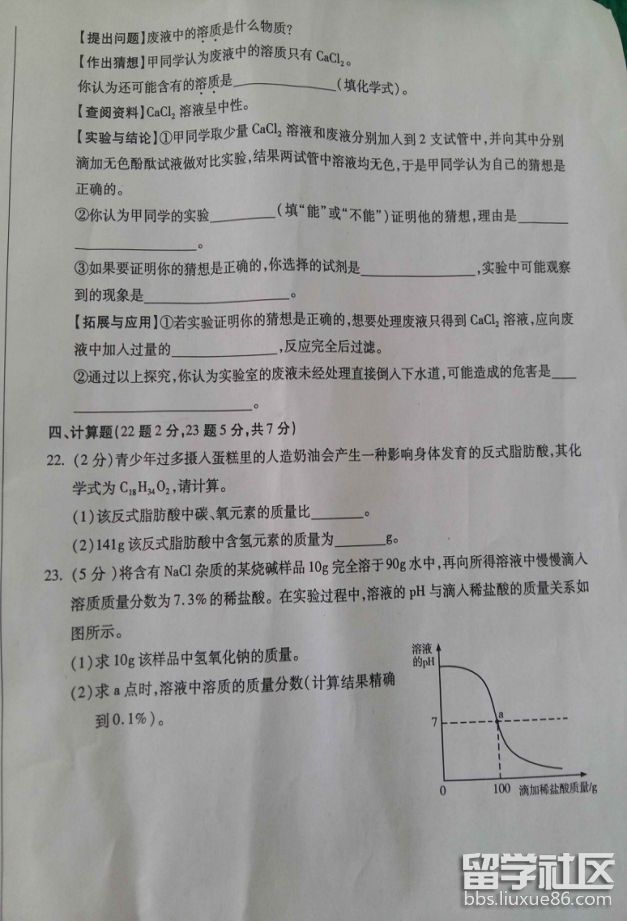 【提出问题】废液中的溶质是什么物质?
【作出猜想】甲同学认为废液中的溶质只有 CaCl₂。
你认为还可能含有的溶质是____________(填化学式)。
【查阅资料】CaCl₂ 溶液呈中性。
【实验与结论】①甲同学取少量 CaCl₂ 溶液和废液分别加入到 2 支试管中,并向其中分别
滴加无色酚酞试液做对比实验,结果两试管中溶液均无色,于是甲同学认为自己的猜想是
正确的。
②你认为甲同学的实验________(填“能”或“不能”)证明他的猜想,理由是______
______________。
③如果要证明你的猜想是正确的,你选择的试剂是______________,实验中可能观察
到的现象是________________。
【拓展与应用】①若实验证明你的猜想是正确的,想要处理废液只得到 CaCl₂ 溶液,应向废
液中加入过量的____________,反应完全后过滤。
②通过以上探究,你认为实验室的废液未经处理直接倒入下水道,可能造成的危害是___
____________________。
四、计算题(22 题 2 分,23 题 5 分,共 7 分)
22. (2 分)青少年过多摄入蛋糕里的人造奶油会产生一种影响身体发育的反式脂肪酸,其化
学式为 C₁₈H₃₄O₂,请计算。
(1)该反式脂肪酸中碳、氧元素的质量比______。
(2)141g 该反式脂肪酸中含氢元素的质量为______g。
23. (5 分)将含有 NaCl 杂质的某烧碱样品 10g 完全溶于 90g 水中,再向所得溶液中慢慢滴入
溶质质量分数为 7.3%的稀盐酸。在实验过程中,溶液的 pH 与滴入稀盐酸的质量关系如
图所示。
(1)求 10g 该样品中氢氧化钠的质量。
(2)求 a 点时,溶液中溶质的质量分数(计算结果精确
到 0.1%)。
溶液
的pH
7
a
0
100
滴加稀盐酸质量/g
留学社区
bbs.liuxue86.com